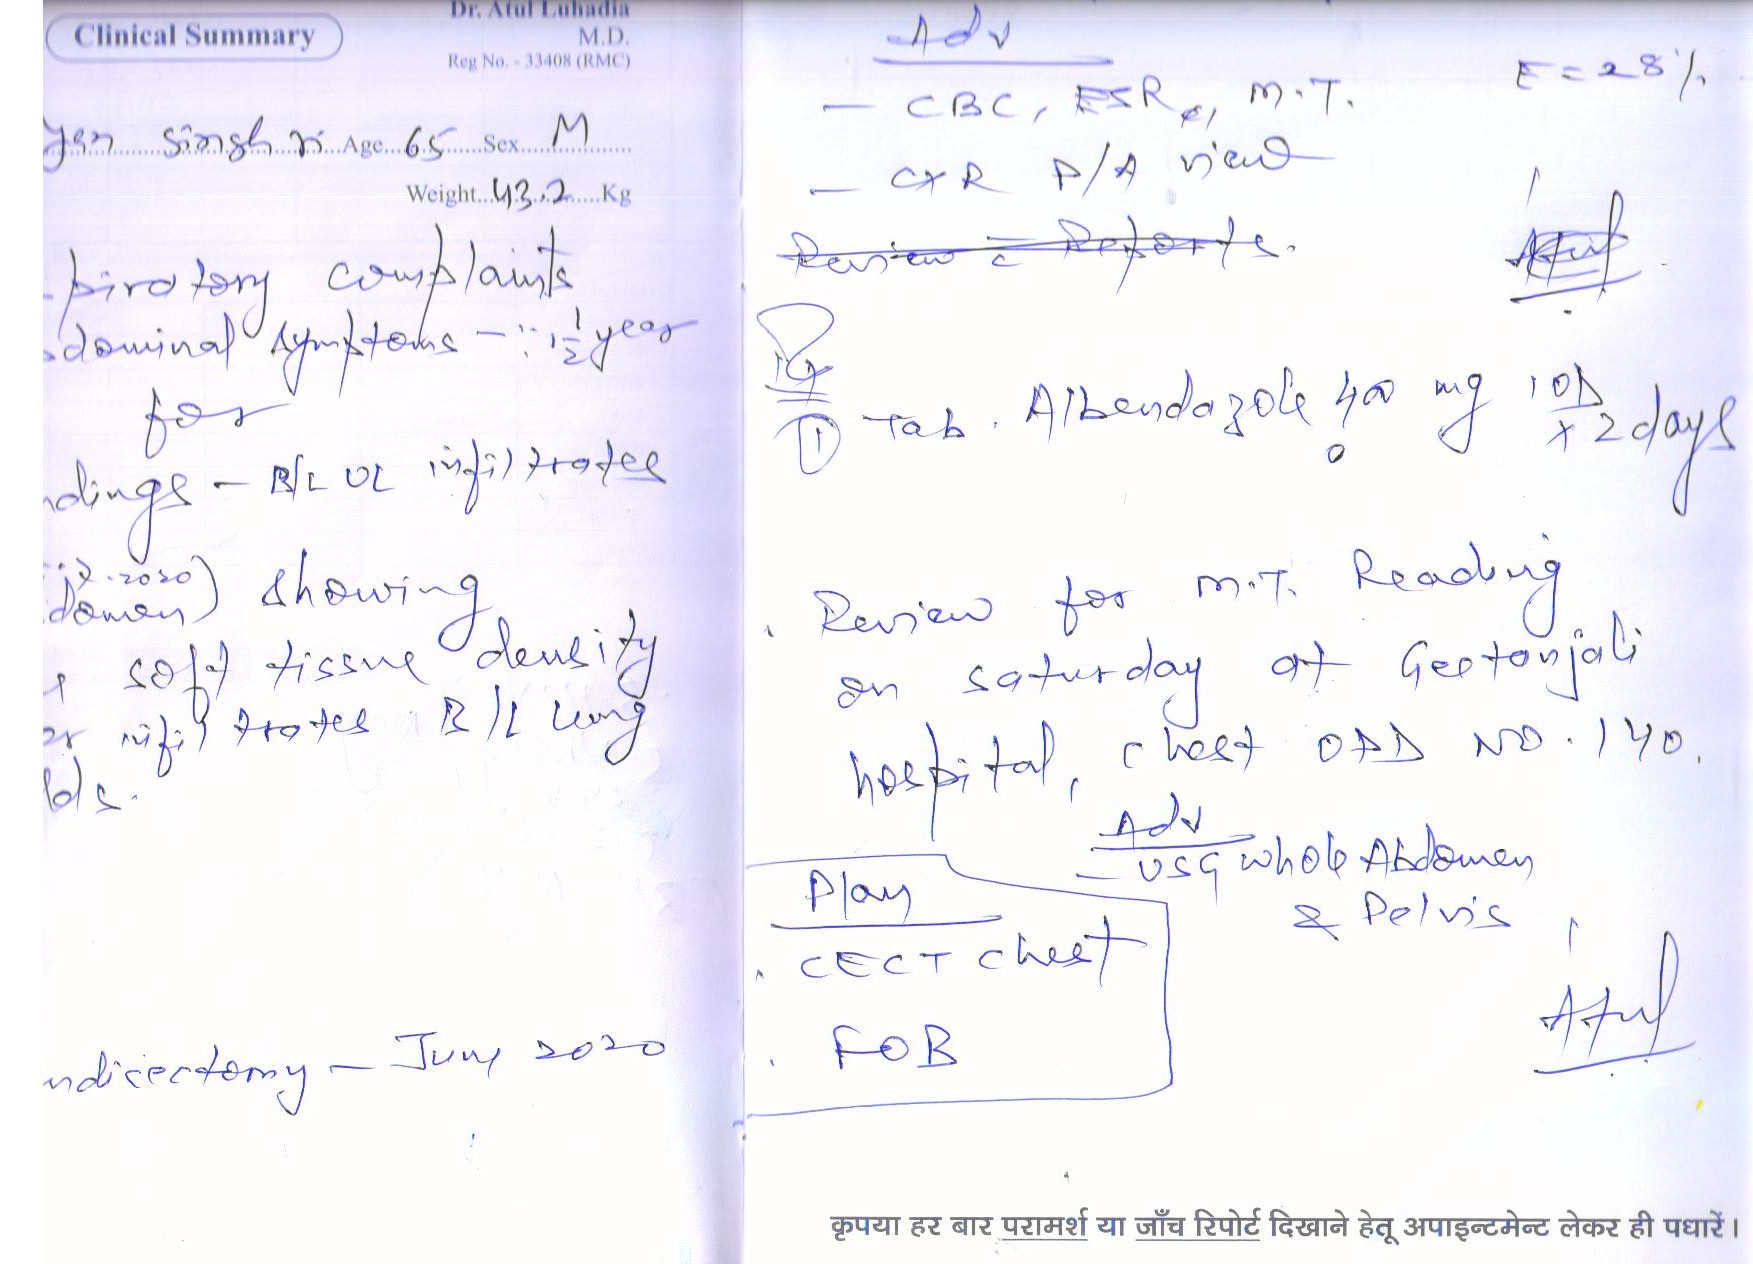 Clinical Summary
Dr. Atul Luhadia
M.D.
Reg No. - 33408 (RMC)
Singh Age 65 Sex M
Weight 43.2 Kg
piratory complaints
dominal symptoms - 1 1/2 year
for
dings - B/L UL infiltrates
2020)
domen) showing
soft tissue density
infiltrates B/L lung
lds.
ndicectomy - June 2020
Adv
- CBC, ESR, M.T.
E = 28%
- CXR P/A view
Review c Reports.
Atul
① Tab. Albendazole 400 mg 1 OD
x 2 days
Review for M.T. Reading
on saturday at Geetanjali
hospital, chest OPD NO. 140.
Adv
- USG whole Abdomen
& Pelvis
Plan
. CECT chest
. FOB
Atul
कृपया हर बार परामर्श या जाँच रिपोर्ट दिखाने हेतू अपाइन्टमेन्ट लेकर ही पधारें।